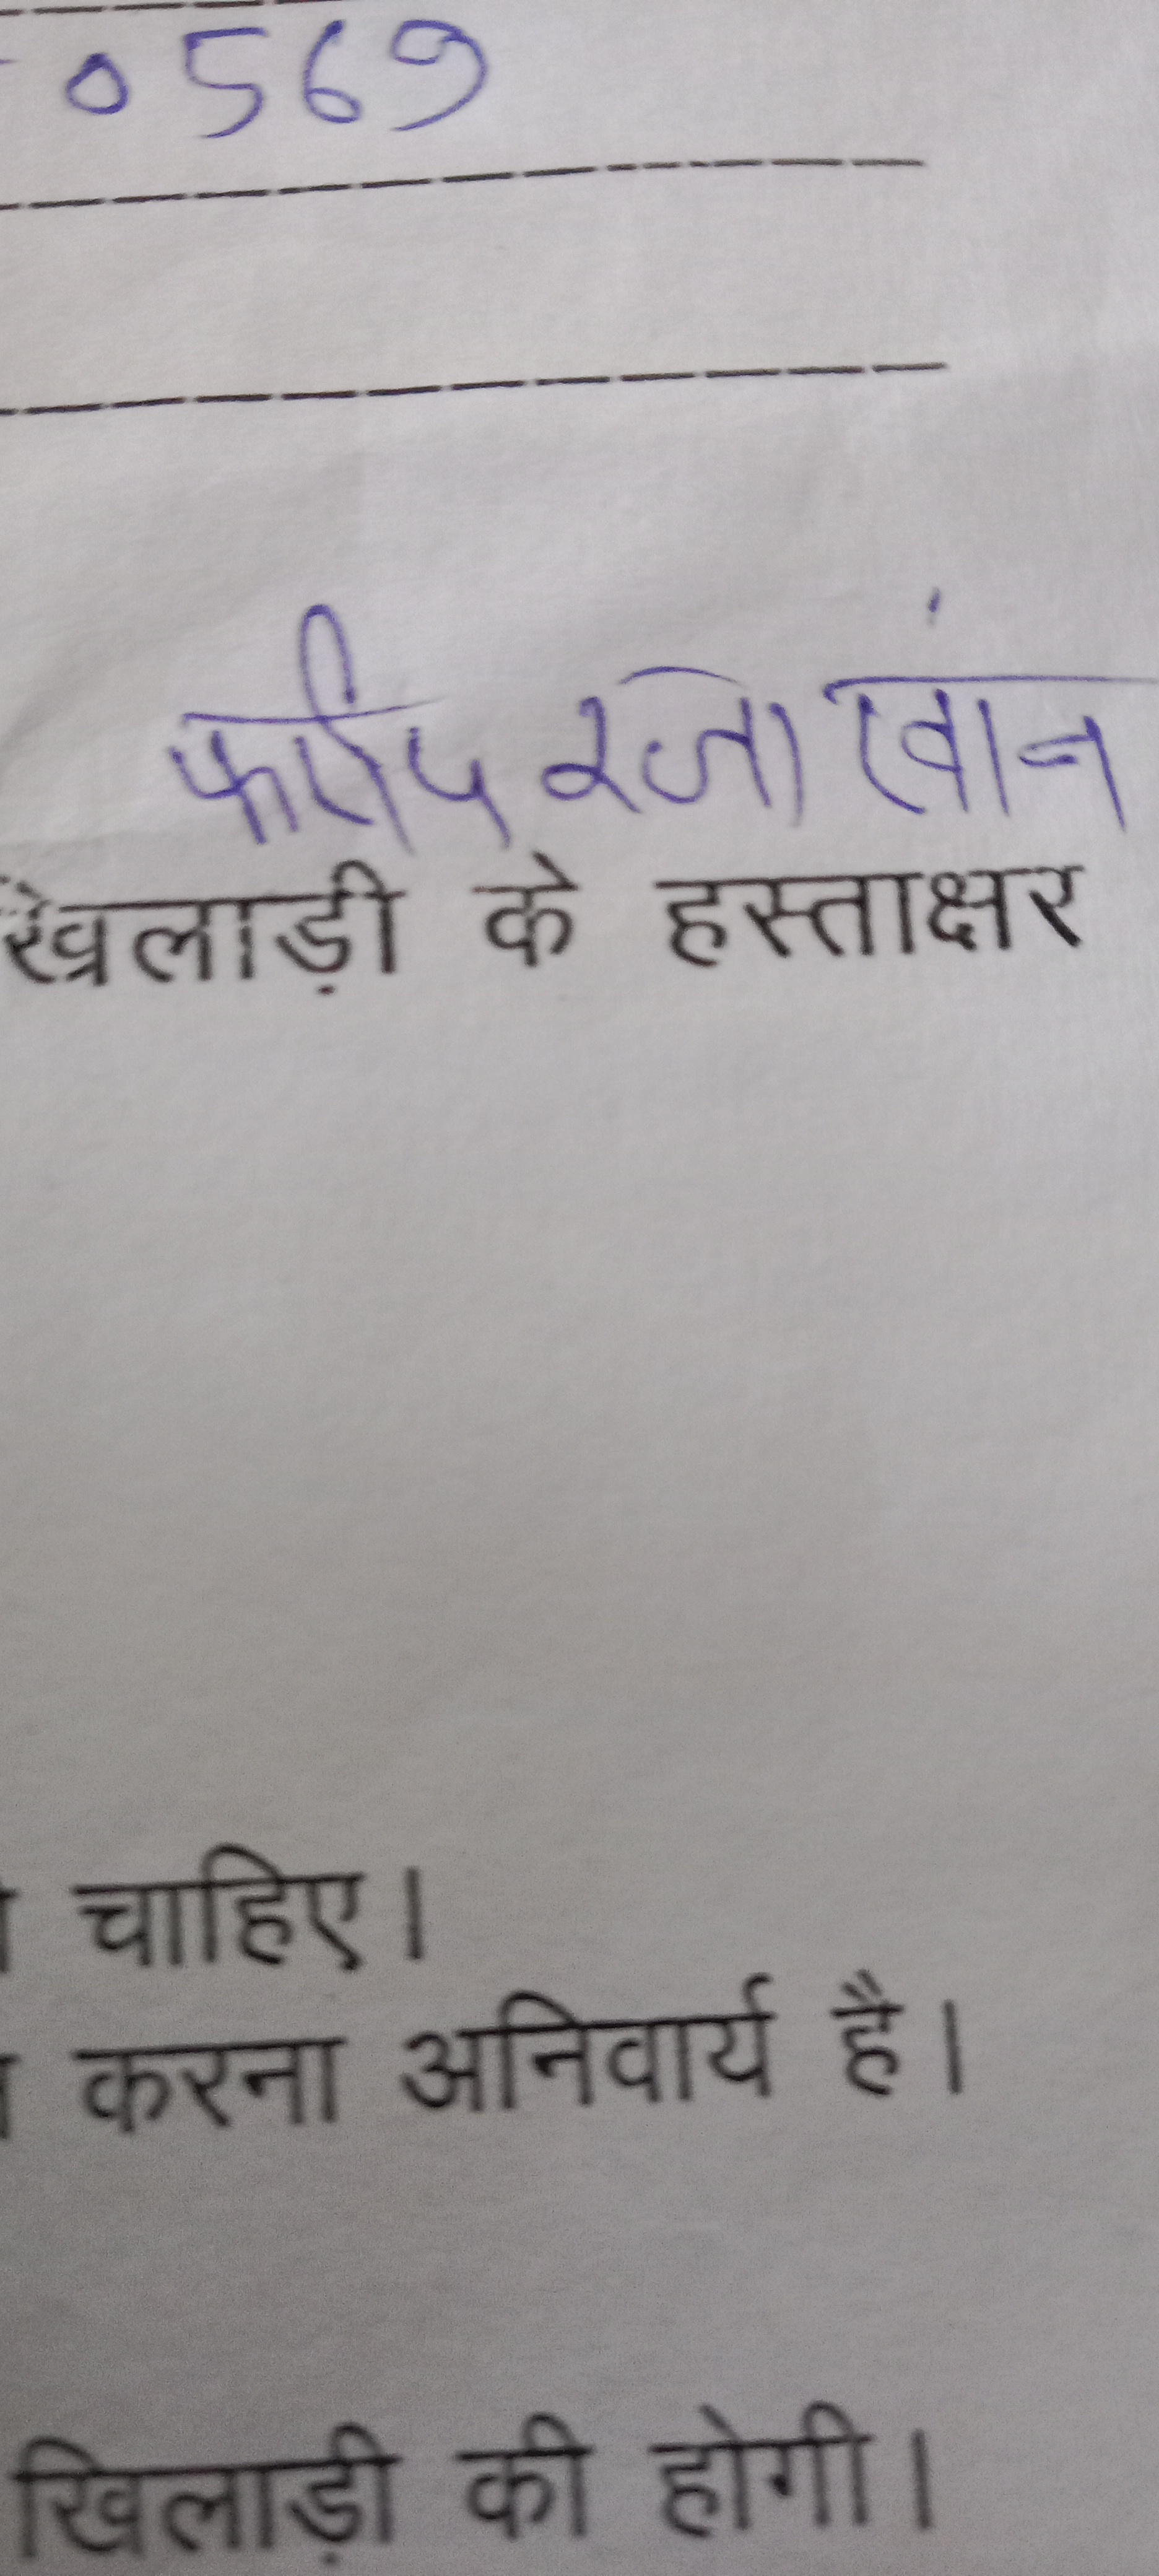 0569
रजा खांन
खिलाड़ी के हस्ताक्षर
चाहिए।
करना अनिवार्य है।
खिलाड़ी की होगी।